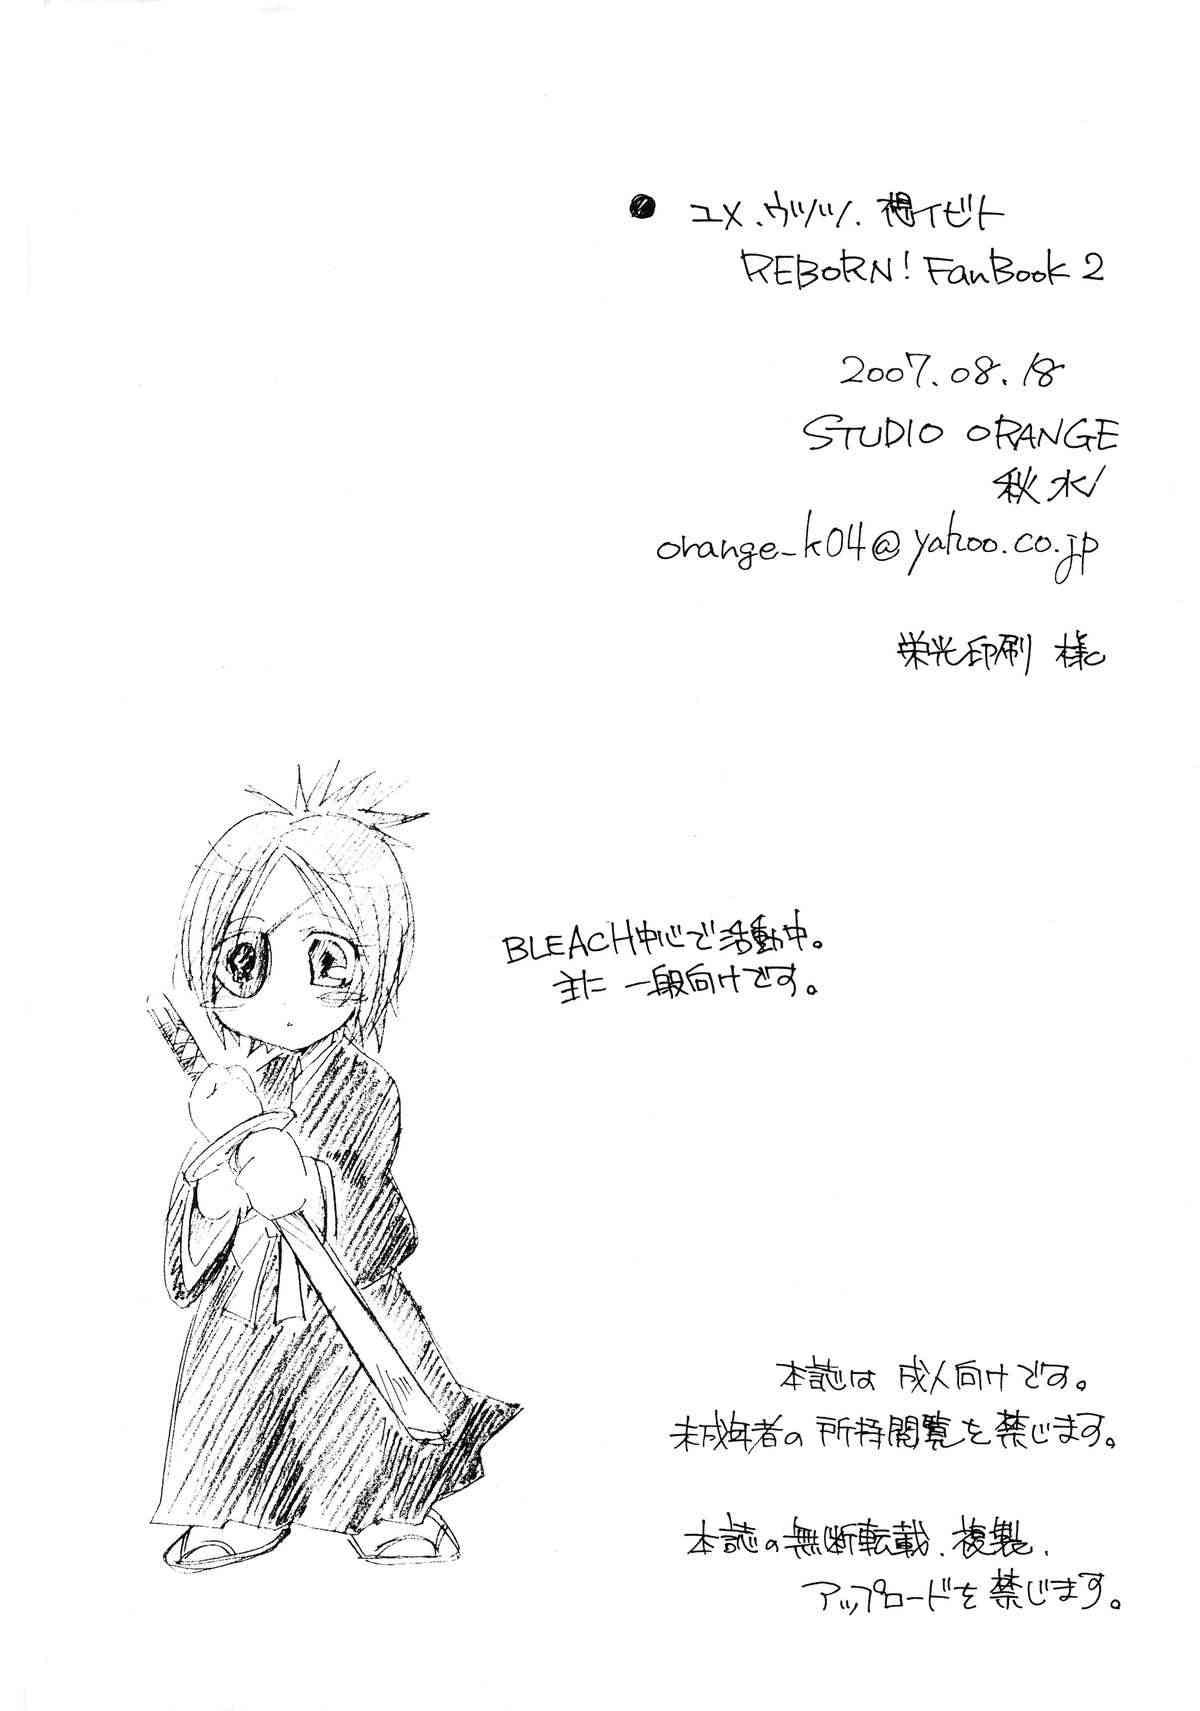 ● ユメ、ウツツ、想イビト
REBORN! FanBook 2
2007.08.18
STUDIO ORANGE
秋水
orange_k04@yahoo.co.jp
栄光印刷 様。
BLEACH中心で活動中。
主に 一般向けです。
本誌は 成人向けです。
未成年者の 所持閲覧を禁じます。
本誌の無断転載、複製、
アップロードを禁じます。